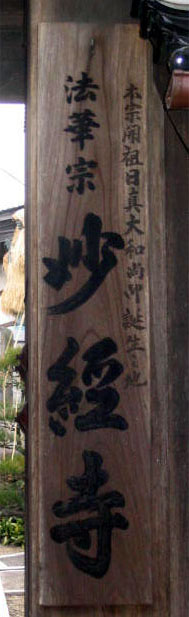 本宗開祖日真大和尚御誕生之地
法華宗
妙經寺